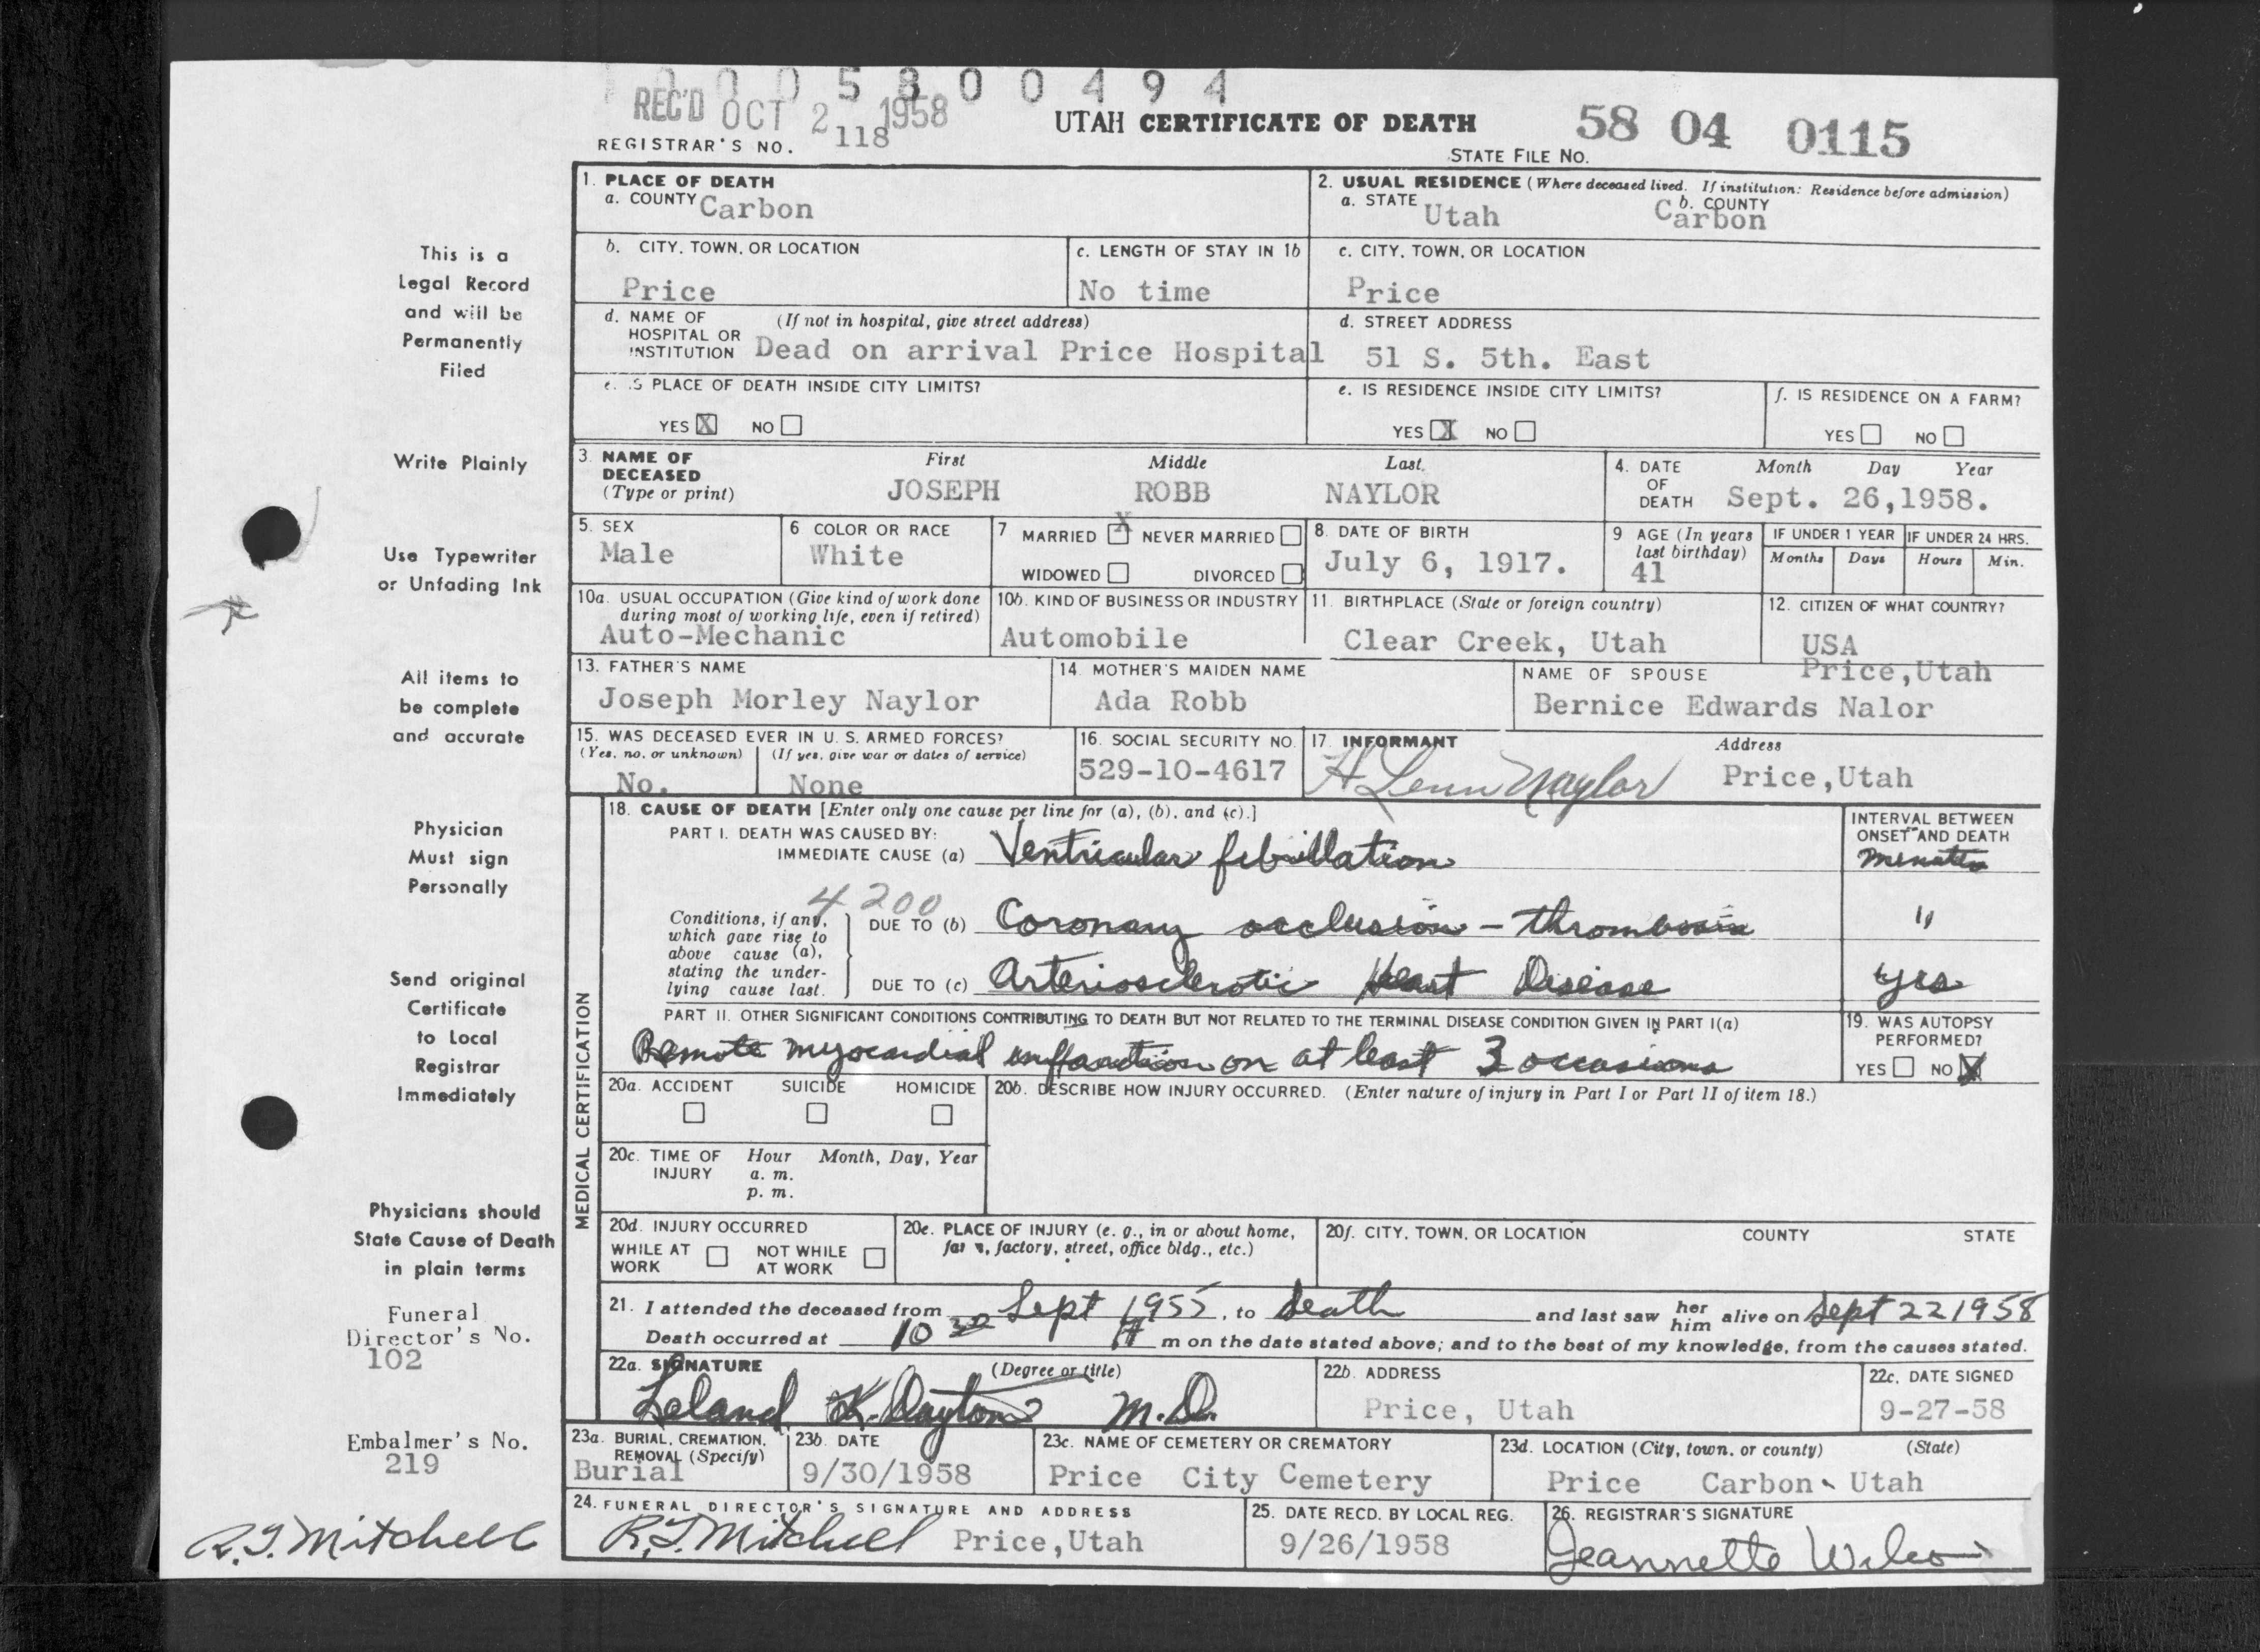 1 0 0 0 5 8 0 0 4 9 4
REC'D OCT 2 1958
REGISTRAR'S NO. 118
UTAH CERTIFICATE OF DEATH
58 04 0115
STATE FILE NO.
1. PLACE OF DEATH
a. COUNTY Carbon
2. USUAL RESIDENCE (Where deceased lived. If institution: Residence before admission)
a. STATE Utah b. COUNTY Carbon
b. CITY, TOWN, OR LOCATION
Price
c. LENGTH OF STAY IN 1b
No time
c. CITY, TOWN, OR LOCATION
Price
d. NAME OF (If not in hospital, give street address)
HOSPITAL OR
INSTITUTION Dead on arrival Price Hospital
d. STREET ADDRESS
51 S. 5th. East
e. IS PLACE OF DEATH INSIDE CITY LIMITS?
YES X NO
e. IS RESIDENCE INSIDE CITY LIMITS?
YES X NO
f. IS RESIDENCE ON A FARM?
YES NO
3. NAME OF DECEASED (Type or print)
First Middle Last
JOSEPH ROBB NAYLOR
4. DATE OF DEATH Month Day Year
Sept. 26,1958.
5. SEX
Male
6 COLOR OR RACE
White
7 MARRIED X NEVER MARRIED
WIDOWED DIVORCED
8. DATE OF BIRTH
July 6, 1917.
9 AGE (In years last birthday)
41
IF UNDER 1 YEAR IF UNDER 24 HRS.
Months Days Hours Min.
10a. USUAL OCCUPATION (Give kind of work done
during most of working life, even if retired)
Auto-Mechanic
10b. KIND OF BUSINESS OR INDUSTRY
Automobile
11. BIRTHPLACE (State or foreign country)
Clear Creek, Utah
12. CITIZEN OF WHAT COUNTRY?
USA
13. FATHER'S NAME
Joseph Morley Naylor
14 MOTHER'S MAIDEN NAME
Ada Robb
NAME OF SPOUSE Price,Utah
Bernice Edwards Nalor
15. WAS DECEASED EVER IN U. S. ARMED FORCES?
(Yes, no, or unknown) (If yes, give war or dates of service)
No. None
16. SOCIAL SECURITY NO.
529-10-4617
17. INFORMANT Address
H Lenn Naylor Price,Utah
18. CAUSE OF DEATH [Enter only one cause per line for (a), (b), and (c).]
PART I. DEATH WAS CAUSED BY:
IMMEDIATE CAUSE (a) Ventricular fibrillation
INTERVAL BETWEEN
ONSET AND DEATH
minutes
4200
Conditions, if any,
which gave rise to
above cause (a),
stating the under-
lying cause last.
DUE TO (b) Coronary occlusion - thrombosis "
DUE TO (c) Arteriosclerotic Heart Disease yrs
PART II. OTHER SIGNIFICANT CONDITIONS CONTRIBUTING TO DEATH BUT NOT RELATED TO THE TERMINAL DISEASE CONDITION GIVEN IN PART I(a)
Remote myocardial infarction on at least 3 occasions
19. WAS AUTOPSY
PERFORMED?
YES NO X
20a. ACCIDENT SUICIDE HOMICIDE
20b. DESCRIBE HOW INJURY OCCURRED. (Enter nature of injury in Part I or Part II of item 18.)
20c. TIME OF INJURY Hour Month, Day, Year
a. m.
p. m.
20d. INJURY OCCURRED
WHILE AT WORK NOT WHILE AT WORK
20e. PLACE OF INJURY (e. g., in or about home,
farm, factory, street, office bldg., etc.)
20f. CITY, TOWN, OR LOCATION COUNTY STATE
21. I attended the deceased from Sept 1955, to death and last saw her him alive on Sept 22 1958
Death occurred at 10 30 A m on the date stated above; and to the best of my knowledge, from the causes stated.
22a. SIGNATURE (Degree or title)
Leland K. Dayton M.D.
22b. ADDRESS
Price, Utah
22c. DATE SIGNED
9-27-58
23a. BURIAL, CREMATION,
REMOVAL (Specify)
Burial
23b. DATE
9/30/1958
23c. NAME OF CEMETERY OR CREMATORY
Price City Cemetery
23d. LOCATION (City, town, or county) (State)
Price Carbon Utah
24. FUNERAL DIRECTOR'S SIGNATURE AND ADDRESS
R.J. Mitchell Price,Utah
25. DATE RECD. BY LOCAL REG.
9/26/1958
26. REGISTRAR'S SIGNATURE
Jeannette Wilcox
MEDICAL CERTIFICATION
This is a
Legal Record
and will be
Permanently
Filed
Write Plainly
Use Typewriter
or Unfading Ink
All items to
be complete
and accurate
Physician
Must sign
Personally
Send original
Certificate
to Local
Registrar
Immediately
Physicians should
State Cause of Death
in plain terms
Funeral
Director's No.
102
Embalmer's No.
219
R.J. Mitchell